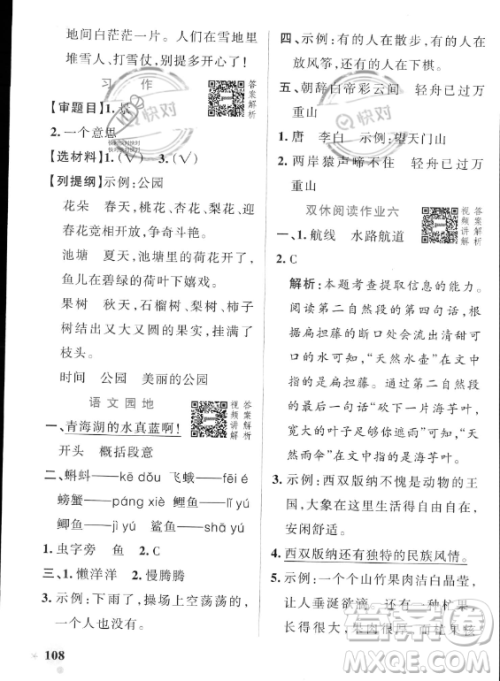 地间白茫茫一片。人们在雪地里
堆雪人、打雪仗，玩得多开心了！
习 作
答案解析
【审题目】1.
2.一个意思
【选材料】1.（√） 3.（√）
【列提纲】示例：公园
花朵 春天，桃花、杏花、梨花、
迎春花竞相开放，争奇斗艳。
池塘 夏天，池塘中荷花盛开，
鱼儿在碧绿的荷叶下嬉戏。
果树 秋天，石榴树、梨树、柿子
树结出又大又圆的果实，挂满了
枝头。
时间 公园 美丽的公园
语 文 园 地
视频讲解 答案解析
一、青海湖的水真蓝啊！
开头 概括段意
二、蝌蚪——kē dǒu 飞蛾——fēi é
螃蟹——páng xiè 鲤鱼——lǐ yú
鲫鱼——jì yú 鲨鱼——shā yú
1.虫字旁 鱼 2.C
三、1.懒洋洋 2.慢腾腾
3.示例：下雨了，操场上空荡荡的，
一个人也没有。
108
四、示例：有的人在散步，有的人在
放风筝，还有的人在下棋。
五、朝辞白帝彩云间 轻舟已过万
重山
1.唐 李白 示例：望天门山
2.两岸猿声啼不住 轻舟已过
万重山
双休阅读作业六
视频讲解 答案解析
一、1.航线 水路航道
2.C
解析：本题考查提取信息的能力。
阅读第二自然段的第四句话，根
据扁担藤的断口会流出清甜可
口的水，可知“天然水壶”在文中
指的是扁担藤。阅读第二自然段
的最后一句话“砍下一片海芋叶，
宽大的叶子足够你遮雨”可知，
“天然雨伞”在文中指的是海芋叶。
3.示例：西双版纳不愧是动物的王
国，大象在这里自由自在地生活，
安闲舒适。
4.西双版纳还有独特的民族风情。
5.示例：一个个山竹果肉洁白晶莹，
让人垂涎欲滴，
快对
答案圈
MXQE.COM